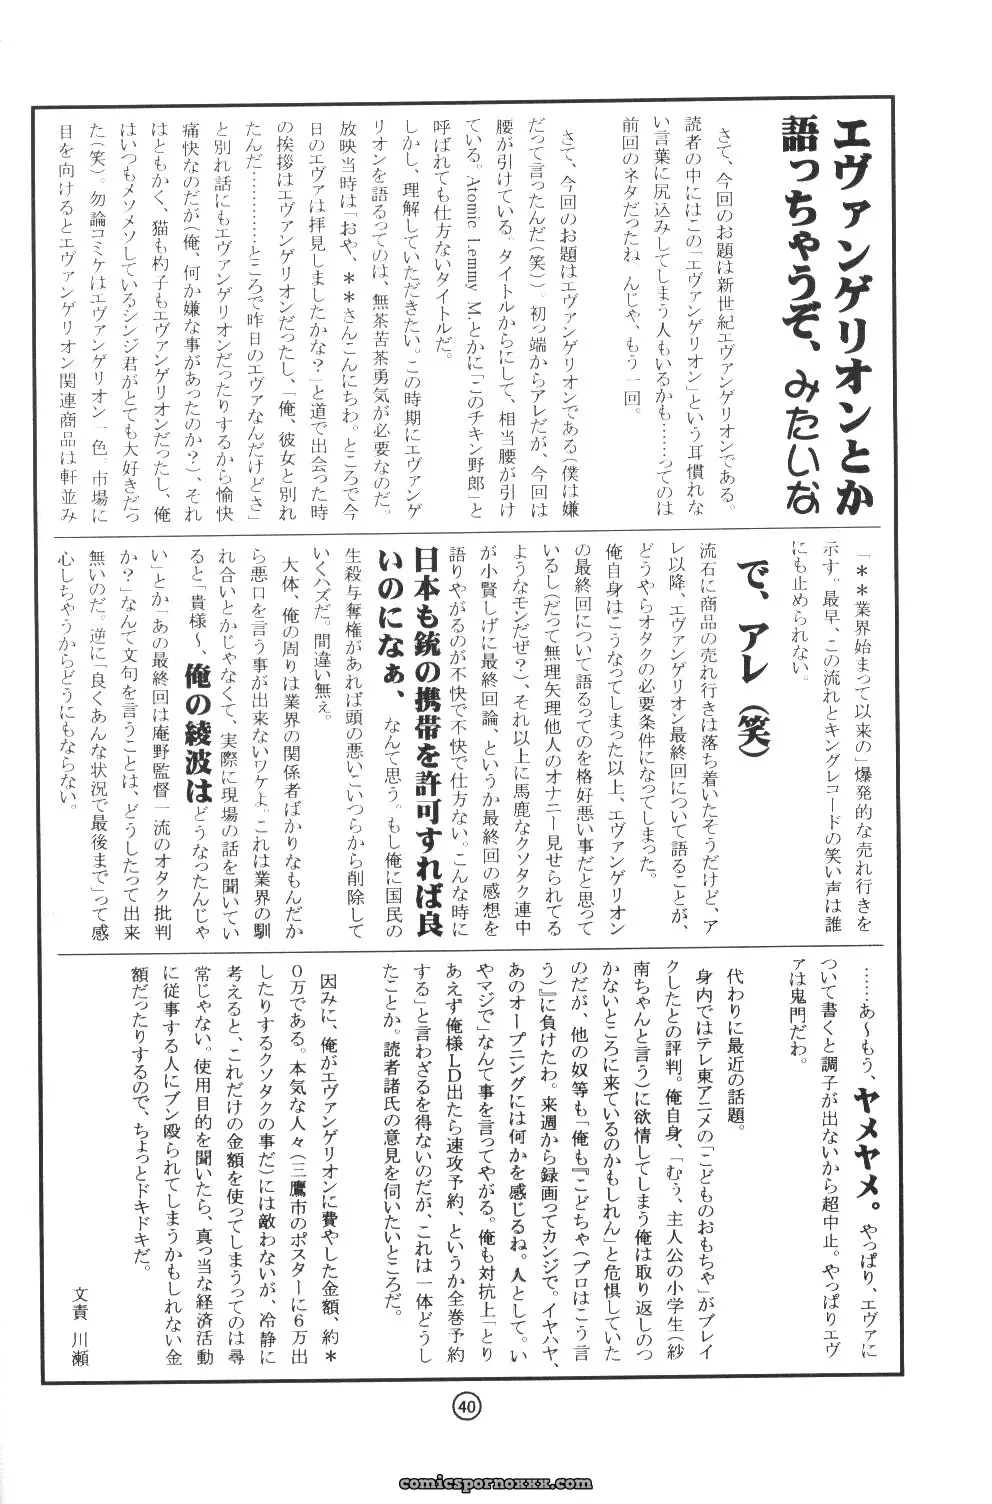 エヴァンゲリオンとか
語っちゃうぞ、みたいな
さて、今回のお題は新世紀エヴァンゲリオンである。
読者の中にはこの「エヴァンゲリオン」という耳慣れな
い言葉に尻込みしてしまう人もいるかも……ってのは
前回のネタだったね。んじゃ、もう一回。
さて、今回のお題はエヴァンゲリオンである(僕は嫌
だって言ったんだ(笑))。初っ端からアレだが、今回は
腰が引けている。タイトルからにして、相当腰が引け
ている。Atomic Lemmy Mとかに「このチキン野郎」と
呼ばれても仕方ないタイトルだ。
しかし、理解していただきたい。この時期にエヴァンゲ
リオンを語るってのは、無茶苦茶勇気が必要なのだ。
放映当時は「おや、＊＊さんこんにちわ。ところで今
日のエヴァは拝見しましたかな?」と道で出会った時
の挨拶はエヴァンゲリオンだったし、「俺、彼女と別れ
たんだ…………ところで昨日のエヴァなんだけどさ」
と別れ話にもエヴァンゲリオンだったりするから愉快
痛快なのだが(俺、何か嫌な事があったのか?)、それ
はともかく、猫も杓子もエヴァンゲリオンだったし、俺
はいつもメソメソしているシンジ君がとても大好きだっ
た(笑)。勿論コミケはエヴァンゲリオン一色。市場に
目を向けるとエヴァンゲリオン関連商品は軒並み
「＊＊業界始まって以来の」爆発的な売れ行きを
示す。最早、この流れとキングレコードの笑い声は誰
にも止められない。
で、アレ(笑)
流石に商品の売れ行きは落ち着いたそうだけど、ア
レ以降、エヴァンゲリオン最終回について語ることが、
どうやらオタクの必要条件になってしまった。
俺自身はこうなってしまった以上、エヴァンゲリオン
の最終回について語るってのを格好悪い事だと思って
いるし(だって無理矢理他人のオナニー見せられてる
ようなモンだぜ?)、それ以上に馬鹿なクソタク連中
が小賢しげに最終回論、というか最終回の感想を
語りやがるのが不快で不快で仕方ない。こんな時に
日本も銃の携帯を許可すれば良
いのになぁ、なんて思う。もし俺に国民の
生殺与奪権があれば頭の悪いこいつらから削除して
いくハズだ。間違い無ぇ。
大体、俺の周りは業界の関係者ばかりなもんだか
ら悪口を言う事が出来ないワケよ。これは業界の馴
れ合いとかじゃなくて、実際に現場の話を聞いてい
ると「貴様〜、俺の綾波はどうなったんじゃ
い」とか「あの最終回は庵野監督一流のオタク批判
か?」なんて文句を言うことは、どうしたって出来
無いのだ。逆に「良くあんな状況で最後まで」って感
心しちゃうからどうにもならない。
……あ〜もう、ヤメヤメ。やっぱり、エヴァに
ついて書くと調子が出ないから超中止。やっぱりエヴ
ァは鬼門だわ。
代わりに最近の話題。
身内ではテレ東アニメの「こどものおもちゃ」がブレイ
クしたとの評判。俺自身、「むぅ、主人公の小学生(紗
南ちゃんと言う)に欲情してしまう俺は取り返しのつ
かないところに来ているのかもしれん」と危惧していた
のだが、他の奴等も「俺も『こどちゃ(プロはこう言
う)』に負けたわ。来週から録画ってカンジで。イヤハヤ、
あのオープニングには何かを感じるね。人として。い
やマジで」なんて事を言ってやがる。俺も対抗上「とり
あえず俺様LD出たら速攻予約、というか全巻予約
する」と言わざるを得ないのだが、これは一体どうし
たことか。読者諸氏の意見を伺いたいところだ。
因みに、俺がエヴァンゲリオンに費やした金額、約＊
0万である。本気な人々(三鷹市のポスターに6万出
したりするクソタクの事だ)には敵わないが、冷静に
考えると、これだけの金額を使ってしまうってのは尋
常じゃない。使用目的を聞いたら、真っ当な経済活動
に従事する人にブン殴られてしまうかもしれない金
額だったりするので、ちょっとドキドキだ。
文責 川瀬
40
comicspornoxxx.com